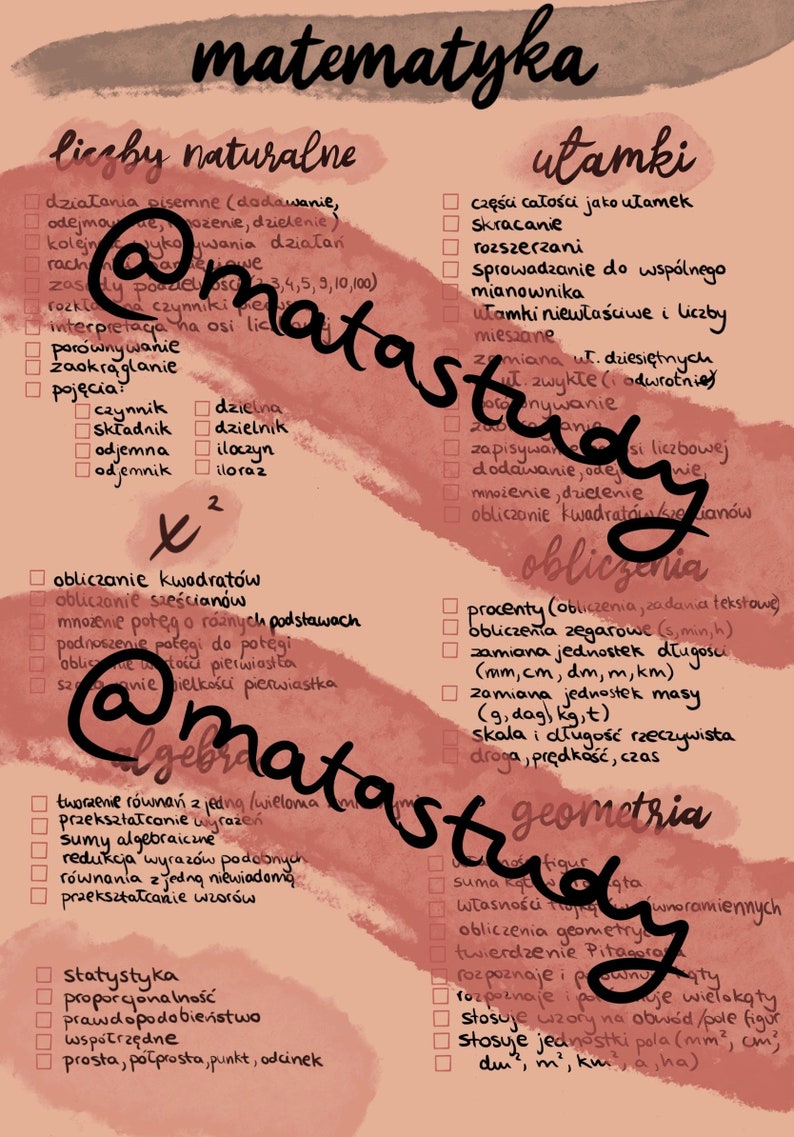 matematyka
liczby naturalne
działania pisemne (dodawanie,
odejmowanie, mnożenie, dzielenie)
kolejność wykonywania działań
rachunki pamięciowe
zasady podzielności (2,3,4,5,9,10,100)
rozkład na czynniki pierwsze
interpretacja na osi liczbowej
porównywanie
zaokrąglanie
pojęcia:
czynnik
składnik
odjemna
odjemnik
dzielna
dzielnik
iloczyn
iloraz
x²
obliczanie kwadratów
obliczanie sześcianów
mnożenie potęg o różnych podstawach
podnoszenie potęgi do potęgi
obliczanie wartości pierwiastka
szacowanie wielkości pierwiastka
algebra
tworzenie równań z jedną/wieloma zmiennymi
przekształcanie wyrażeń
sumy algebraiczne
redukcja wyrazów podobnych
równania z jedną niewiadomą
przekształcanie wzorów
statystyka
proporcjonalność
prawdopodobieństwo
współrzędne
prosta, półprosta, punkt, odcinek
ułamki
części całości jako ułamek
skracanie
rozszerzani
sprowadzanie do wspólnego
mianownika
ułamki niewłaściwe i liczby
mieszane
zamiana uł. dziesiętnych
uł. zwykłe (i odwrotnie)
porównywanie
zaokrąglanie
zapisywanie osi liczbowej
dodawanie, odejmowanie,
mnożenie, dzielenie
obliczanie kwadratów/sześcianów
obliczenia
procenty (obliczenia, zadania tekstowe)
obliczenia zegarowe (s, min, h)
zamiana jednostek długości
(mm, cm, dm, m, km)
zamiana jednostek masy
(g, dag, kg, t)
skala i długość rzeczywista
droga, prędkość, czas
geometria
własności figur
suma kątów trójkąta
własności trójkątów równoramiennych
obliczenia geometryczne
twierdzenie Pitagorasa
rozpoznaje i porównuje kąty
rozpoznaje i porównuje wielokąty
stosuje wzory na obwód/pole figur
stosuje jednostki pola (mm², cm²,
dm², m², km², a, ha)
@matastudy
@matastudy